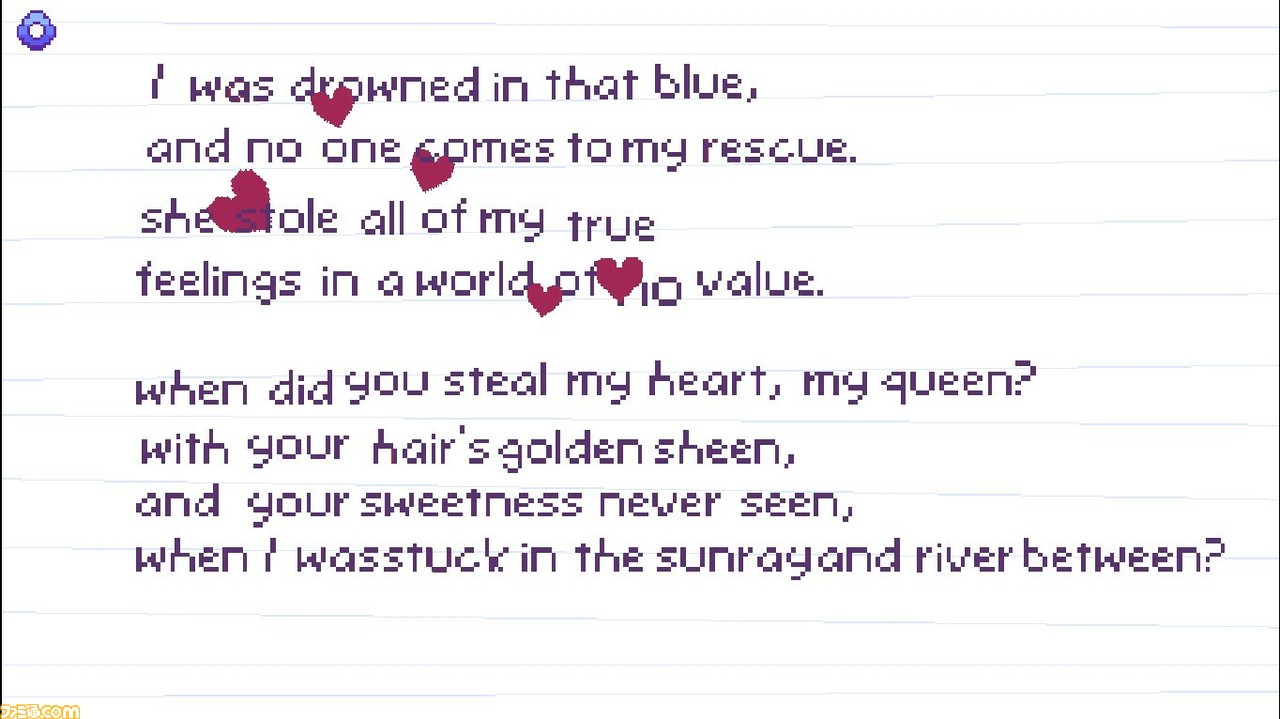 I was drowned in that blue,
and no one comes to my rescue.
she stole all of my true
feelings in a world of no value.
when did you steal my heart, my queen?
with your hair's golden sheen,
and your sweetness never seen,
when I was stuck in the sunray and river between?
ファミ通.com